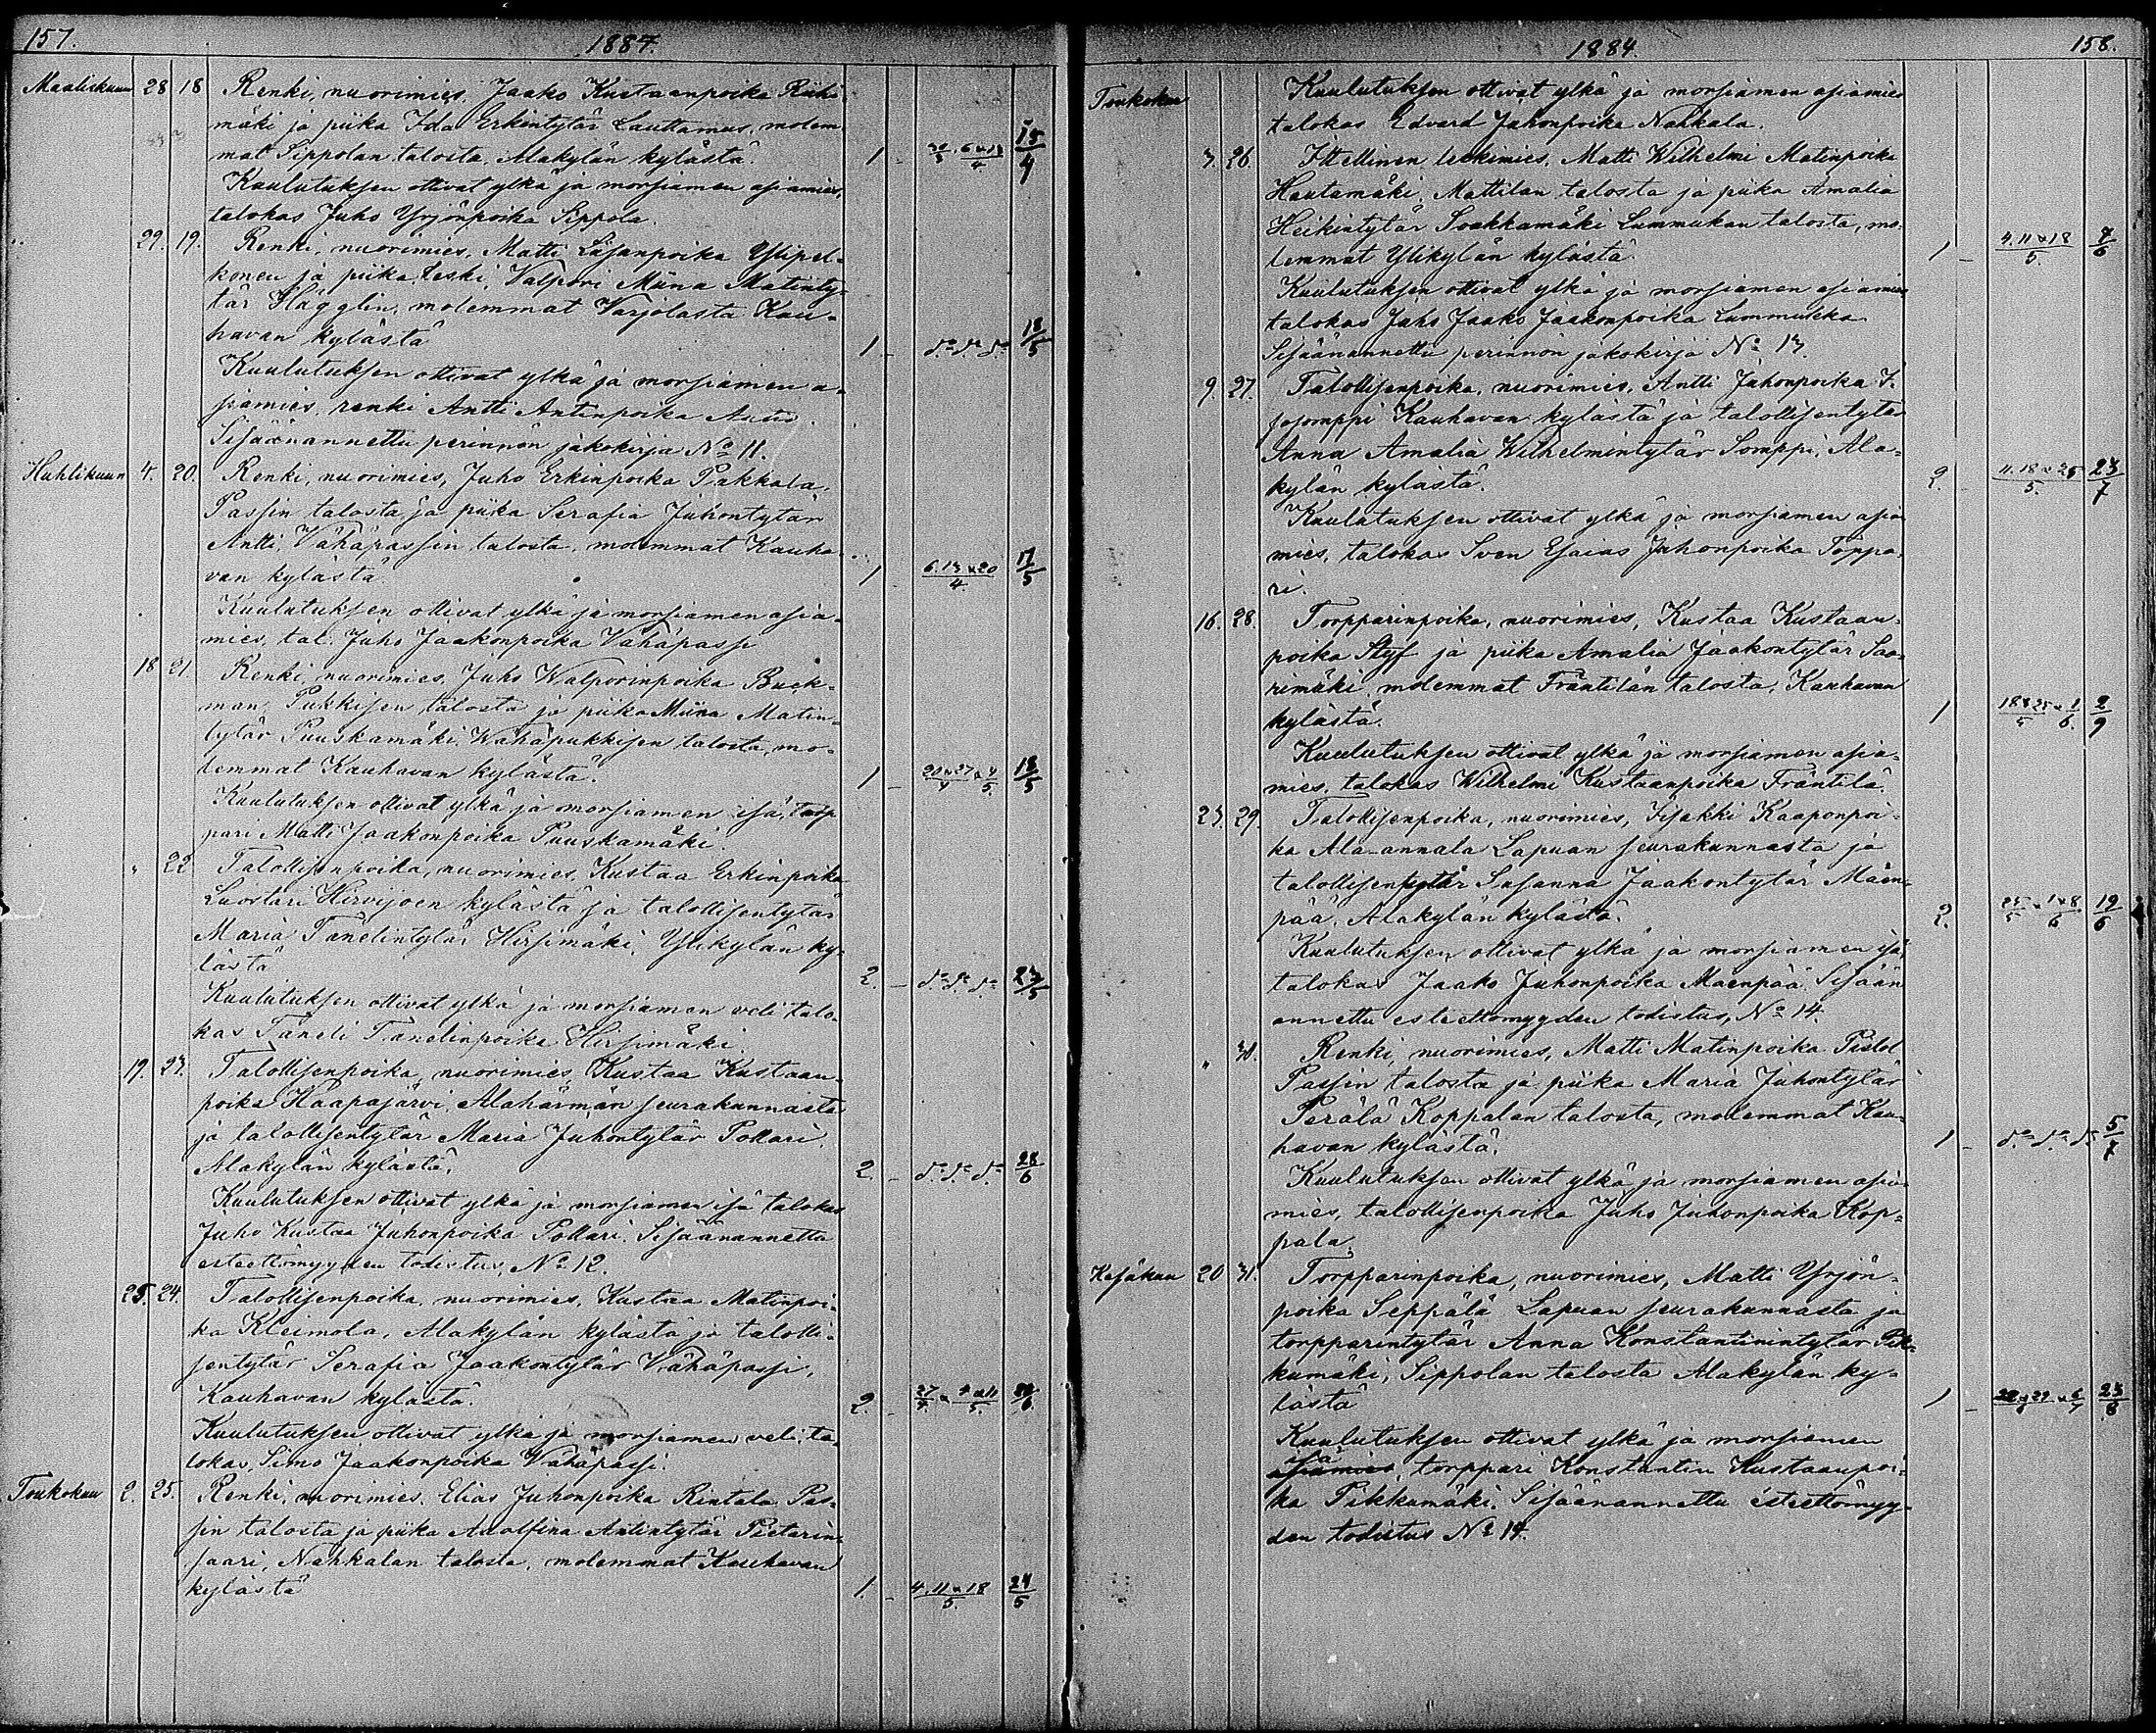 157. 1884.
Maaliskuun 28 18 Renki, nuorimies, Jaako Kustaanpoika Riihi-
mäki ja piika Ida Erkintytär Lauttamus, molem-
mat Sippolan talosta, Alakylän kylästä. 1 - 30/3. 6 & 13/4 15/4
Kuulutuksen ottivat ylkä ja morsiamen asiamies,
talokas Juho Yrjönpoika Sippola.
29. 19. Renki, nuorimies, Matti Liisanpoika Ylipel-
konen ja piika, leski, Valpori Miina Matinty-
tär Hägglin, molemmat Varjolasta Kau-
havan kylästä 1 - do do do 18/5
Kuulutuksen ottivat ylkä ja morsiamen a-
siamies, renki Antti Antinpoika
Sisäänannettu perinnön jakokirja No 11.
Huhtikuun 4. 20. Renki, nuorimies, Juho Erkinpoika Pakkala,
Passin talosta ja piika Serafia Juhontytär
Antti, Vähäpassin talosta, molemmat Kauha-
van kylästä. 1 6.13 & 20/4. 17/5
Kuulutuksen ottivat ylkä ja morsiamen asia-
mies, tal. Juho Jaakonpoika Vähäpassi
18 21. Renki, nuorimies, Juho Walporinpoika Buck-
man, Pukkisen talosta ja piika Miina Matin-
tytär Puuskamäki, Wähäpukkisen talosta, mo-
lemmat Kauhavan kylästä. 1 - 20 & 27/4 & 4/5. 18/5
Kuulutuksen ottivat ylkä ja morsiamen isä, torp
pari Matti Jaakonpoika Puuskamäki.
" 22 Talollisenpoika, nuorimies, Kustaa Erkinpoika
Luostari Hirvijoen kylästä ja talollisentytär
Maria Tanelintytär Hirsimäki, Ylikylän ky-
lästä 2. - do do do 23/5
Kuulutuksen ottivat ylkä ja morsiamen veli talo-
kas Taneli Tanelinpoika Hirsimäki.
19. 23. Talollisenpoika, nuorimies, Kustaa Kustaan-
poika Haapajärvi, Alahärmän seurakunnasta
ja talollisentytär Maria Juhontytär Pollari,
Alakylän kylästä. 2. - do do do 28/6
Kuulutuksen ottivat ylkä ja morsiamen isä talokas
Juho Kustaa Juhonpoika Pollari. Sisäänannettu
esteettömyyden todistus, No 12.
25. 24. Talollisenpoika, nuorimies, Kustaa Matinpoi-
ka Kleimola, Alakylän kylästä ja talolli-
sentytär Serafia Jaakontytär Vähäpassi,
Kauhavan kylästä. 2. - 27/4 & 4 & 11/5.
Kuulutuksen ottivat ylkä ja morsiamen veli, ta-
lokas, Simo Jaakonpoika Vähäpassi.
Toukokuu 2. 25. Renki, nuorimies, Elias Juhonpoika Rintala Pas-
sin talosta ja piika Adolfina Antintytär Pietarin-
saari, Nahkalan talosta, molemmat Kauhavan
kylästä 1. - 4.11 & 18/5. 24/5
1884. 158.
Toukokuu Kuulutuksen ottivat ylkä ja morsiamen asiamies
talokas Edvard Juhonpoika Nahkala.
3. 26. Itsellinen leskimies, Matti Wilhelmi Matinpoika
Hautamäki, Mattilan talosta ja piika Amalia
Heikintytär Soukkamäki Lummukan talosta, mo-
lemmat Ylikylän kylästä. 1 - 4.11 & 18/5. 7/6
Kuulutuksen ottivat ylkä ja morsiamen asiamies
talokas Juho Jaako Jaakonpoika Lummukka
Sisäänannettu perinnön jakokirja No 13.
9. 27. Talollisenpoika, nuorimies, Antti Juhonpoika I-
sosomppi Kauhavan kylästä ja talollisentytär
Anna Amalia Wilhelmintytär Somppi, Ala-
kylän kylästä. 2. - 11.18 & 25/5. 23/7
Kuulutuksen ottivat ylkä ja morsiamen asia-
mies, talokas Sven Esaias Juhonpoika Töppä-
ri.
16. 28. Torpparinpoika, nuorimies, Kustaa Kustaan-
poika Styf ja piika Amalia Jaakontytär Saa-
rimäki, molemmat Fräntilän talosta, Kauhavan
kylästä. 1 18 & 25/5 & 1/6. 2/9
Kuulutuksen ottivat ylkä ja morsiamen asia-
mies, talokas Wilhelmi Kustaanpoika Fräntilä.
23. 29. Talollisenpoika, nuorimies, Iisakki Kaaponpoi-
ka Ala-annala Lapuan seurakunnasta ja
talollisentytär Susanna Jaakontytär Mäen-
pää, Alakylän kylästä. 2. 25/5 & 1 & 8/6 19/6
Kuulutuksen ottivat ylkä ja morsiamen isä,
talokas Jaako Juhonpoika Mäenpää. Sisään
annettu esteettömyyden todistus, No 14.
" 30. Renki, nuorimies, Matti Matinpoika Pistol
Passin talosta ja piika Maria Juhontytär
Perälä Koppalan talosta, molemmat Kau-
havan kylästä. 1 - do do do 5/7
Kuulutuksen ottivat ylkä ja morsiamen asia-
mies, talollisenpoika Juho Juhonpoika Kop-
pala.
Kesäkuu 20 31. Torpparinpoika, nuorimies, Matti Yrjön-
poika Seppälä Lapuan seurakunnasta ja
torpparintytär Anna Konstantinintytär Pik-
kumäki, Sippolan talosta Alakylän ky-
lästä 1 - 22 & 29/6 & 6/7
Kuulutuksen ottivat ylkä ja morsiamen
isä asiamies, torppari Konstantin Kustaanpoi-
ka Pikkumäki. Sisäänannettu esteettömyy-
den todistus No 14.